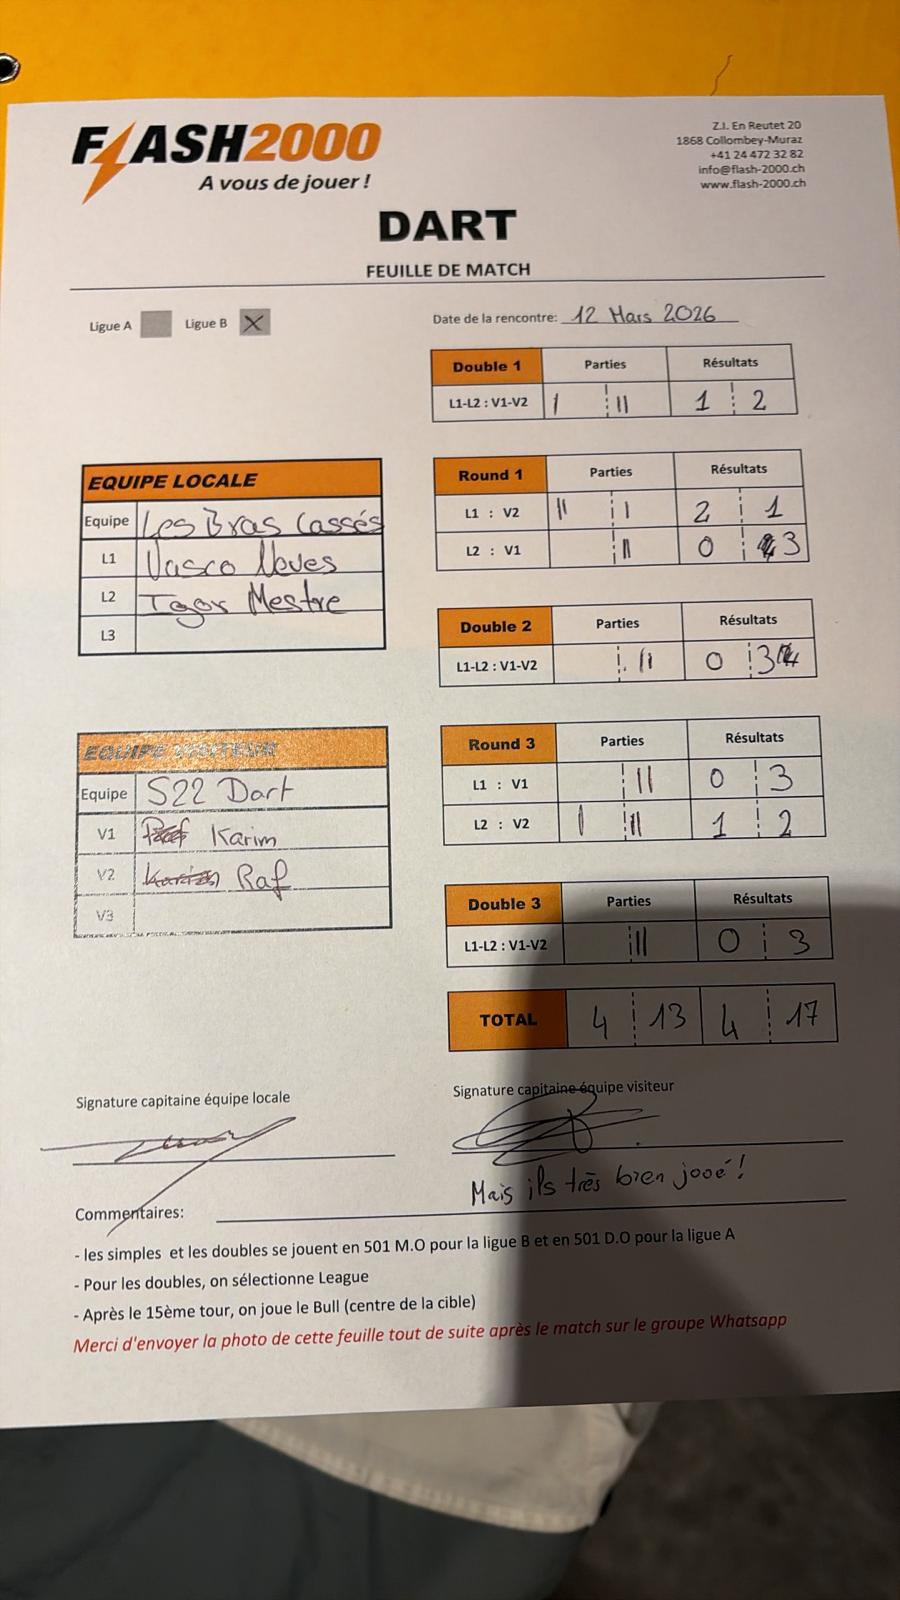 FLASH2000
A vous de jouer !
Z.I. En Reutet 20
1868 Collombey-Muraz
+41 24 472 32 82
info@flash-2000.ch
www.flash-2000.ch
DART
FEUILLE DE MATCH
Ligue A Ligue B X
Date de la rencontre: 12 Mars 2026
Double 1 Parties Résultats
L1-L2 : V1-V2 I II 1 2
EQUIPE LOCALE
Equipe Les Bras Cassés
L1 Vasco Neves
L2 Igor Mestre
L3
Round 1 Parties Résultats
L1 : V2 II I 2 1
L2 : V1 II 0 3
Double 2 Parties Résultats
L1-L2 : V1-V2 II 0 3
EQUIPE VISITEUR
Equipe S22 Dart
V1 Karim
V2 Raf
V3
Round 3 Parties Résultats
L1 : V1 II 0 3
L2 : V2 I II 1 2
Double 3 Parties Résultats
L1-L2 : V1-V2 II 0 3
TOTAL 4 13 4 17
Signature capitaine équipe locale
Signature capitaine équipe visiteur
Mais ils très bien joué !
Commentaires:
- les simples et les doubles se jouent en 501 M.O pour la ligue B et en 501 D.O pour la ligue A
- Pour les doubles, on sélectionne League
- Après le 15ème tour, on joue le Bull (centre de la cible)
Merci d'envoyer la photo de cette feuille tout de suite après le match sur le groupe Whatsapp